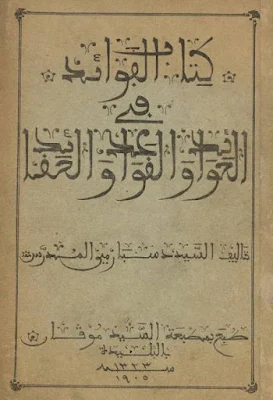 كتاب الفوائد
في
العوائد والقواعد والعقائد
تاليف السيد دسبارمي المدرس
طبع بمطبعة السيد موقان
بالبليدة
سنة ١٣٢٣
١٩٠٥